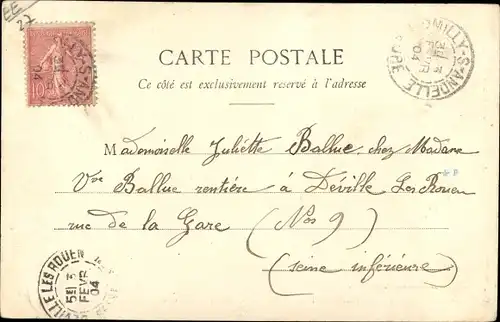 27
10
CARTE POSTALE
Ce côté est exclusivement reservé à l'adresse
ROMILLY-S-ANDELLE
EURE
04
Mademoiselle Juliette Balluc, chez Madame
Vve Balluc rentière à Déville Les Rouen
rue de la Gare (Nos 9)
(seine inférieure)
DEVILLE LES ROUEN
5
FEVR
04